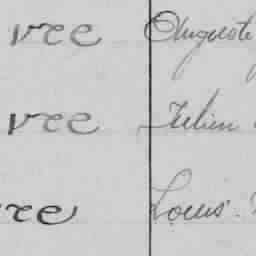 vre Auguste
vre Julien
vre Louis